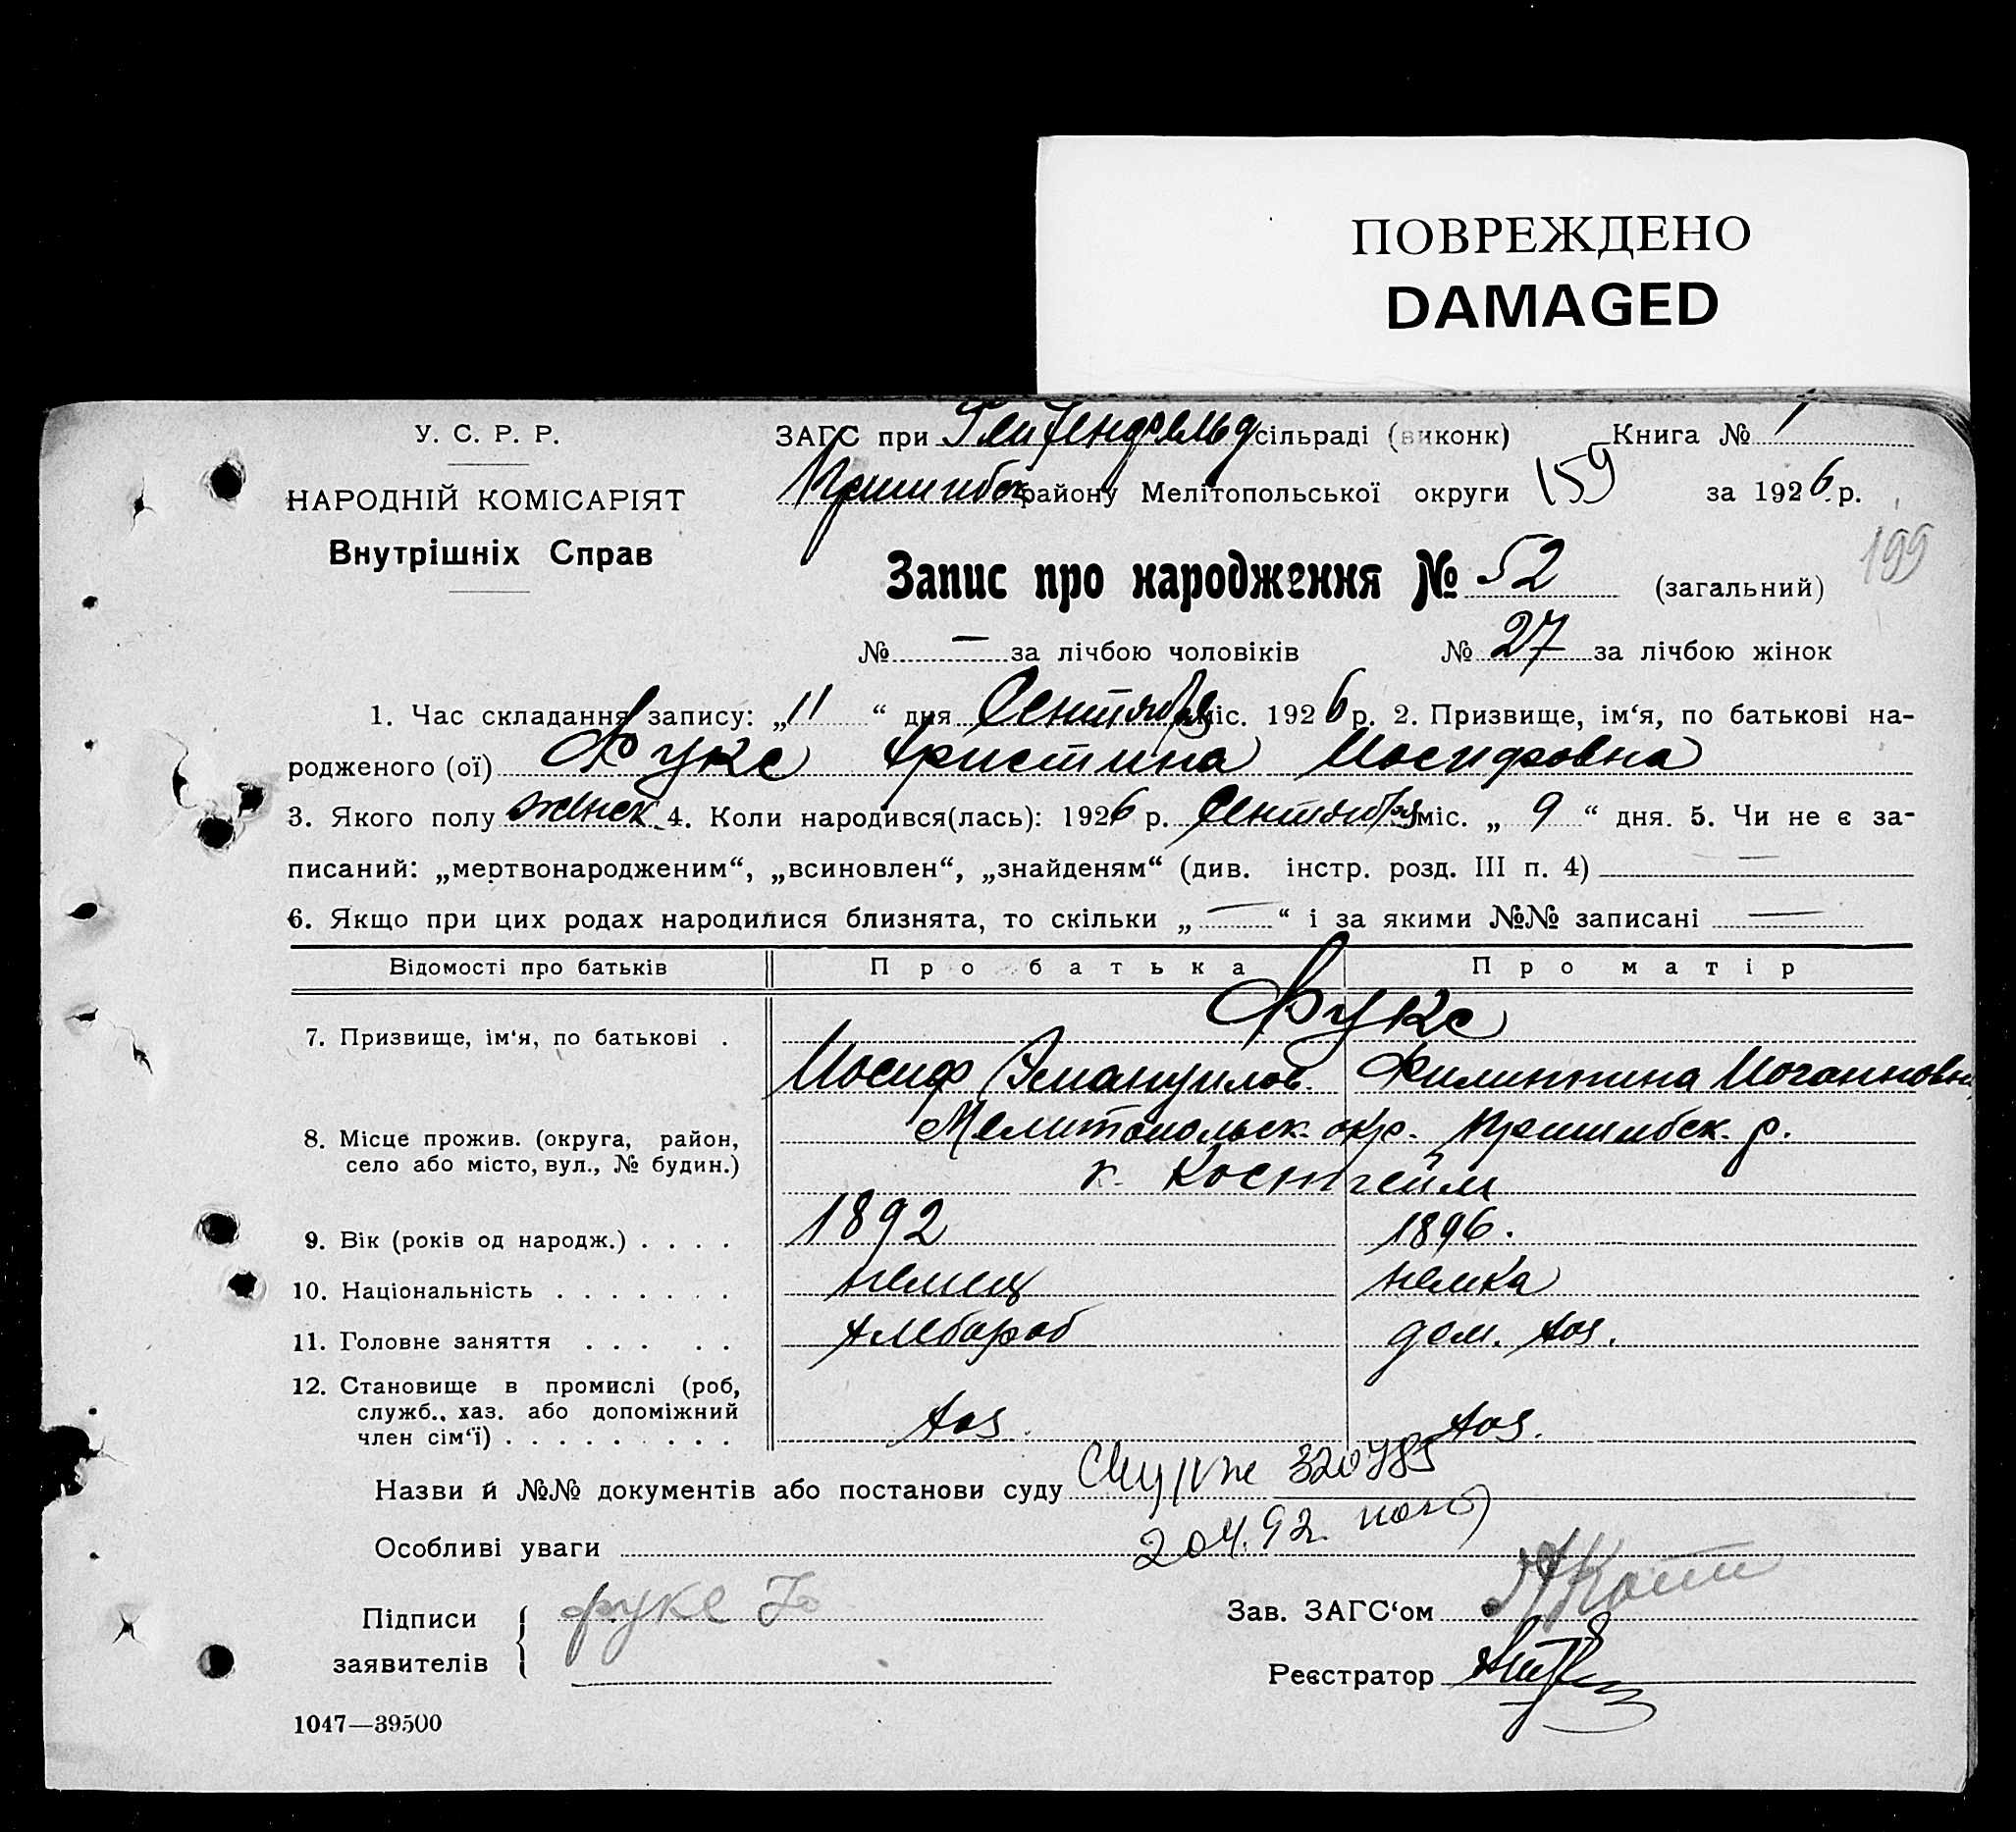 ПОВРЕЖДЕНО
DAMAGED
У. С. Р. Р.
ЗАГС при Гейдендфельд сільраді (виконк) Книга № 1
НАРОДНІЙ КОМІСАРІЯТ
Пришибск району Мелітопольської округи 159 за 1926 р.
Внутрішніх Справ
199
Запис про народження № 52 (загальний)
№ — за лічбою чоловіків № 27 за лічбою жінок
1. Час складання запису: „11“ дня Сентября міс. 1926 р. 2. Призвище, ім‘я, по батькові на-
родженого (ої) Фукс Христина Иосифовна
3. Якого полу женск. 4. Коли народився(лась): 1926 р. Сентября міс. „9“ дня. 5. Чи не є за-
писаний: „мертвонародженим“, „всиновлен“, „знайденям“ (див. інстр. розд. III п. 4) —
6. Якщо при цих родах народилися близнята, то скільки „—“ і за якими №№ записані —
Відомості про батьків Про батька Про матір
Фукс
7. Призвище, ім‘я, по батькові .
Иосиф Эмануилов. Филиппина Иоганновна
8. Місце прожив. (округа, район,
село або місто, вул., № будин.)
Мелитопольск. окр. Пришибск. р.
к. Костгейм
9. Вік (років од народж.) . . . . 1892 1896.
10. Національність . . . . . . . немец немка
11. Головне заняття . . . . . хлебороб дом. хоз.
12. Становище в промислі (роб,
служб., хаз. або допоміжний
член сім‘ї) . . . . . . . . . хоз. хоз.
Назви й №№ документів або постанови суду 320785
Особливі уваги 204.92.
Підписи
заявителів
фукс Ио
Зав. ЗАГС‘ом
Реєстратор
1047—39500